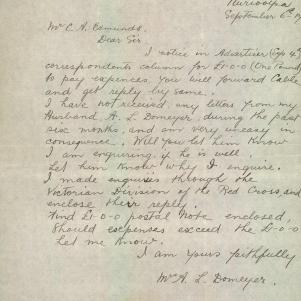 Nuriootpa
September 6th
Mr C. A. Edmunds.
Dear Sir.
I notice in Advertiser
correspondents column for £1-0-0 (One Pound)
to pay expences, you will forward Cable
and get reply by same.
I have not received any letters from my
Husband, A. L. Domeyer, during the past
six months, and am very uneasy in
consequence. Will you let him know
I am enquiring, if he is well
Let him know why I enquire.
I made enquiries through the
Victorian Division of the Red Cross, and
enclose their reply.
Find £1-0-0 postal note enclosed,
Should expenses exceed the £1-0-0
let me know.
I am yours faithfully
Mrs A. L. Domeyer.